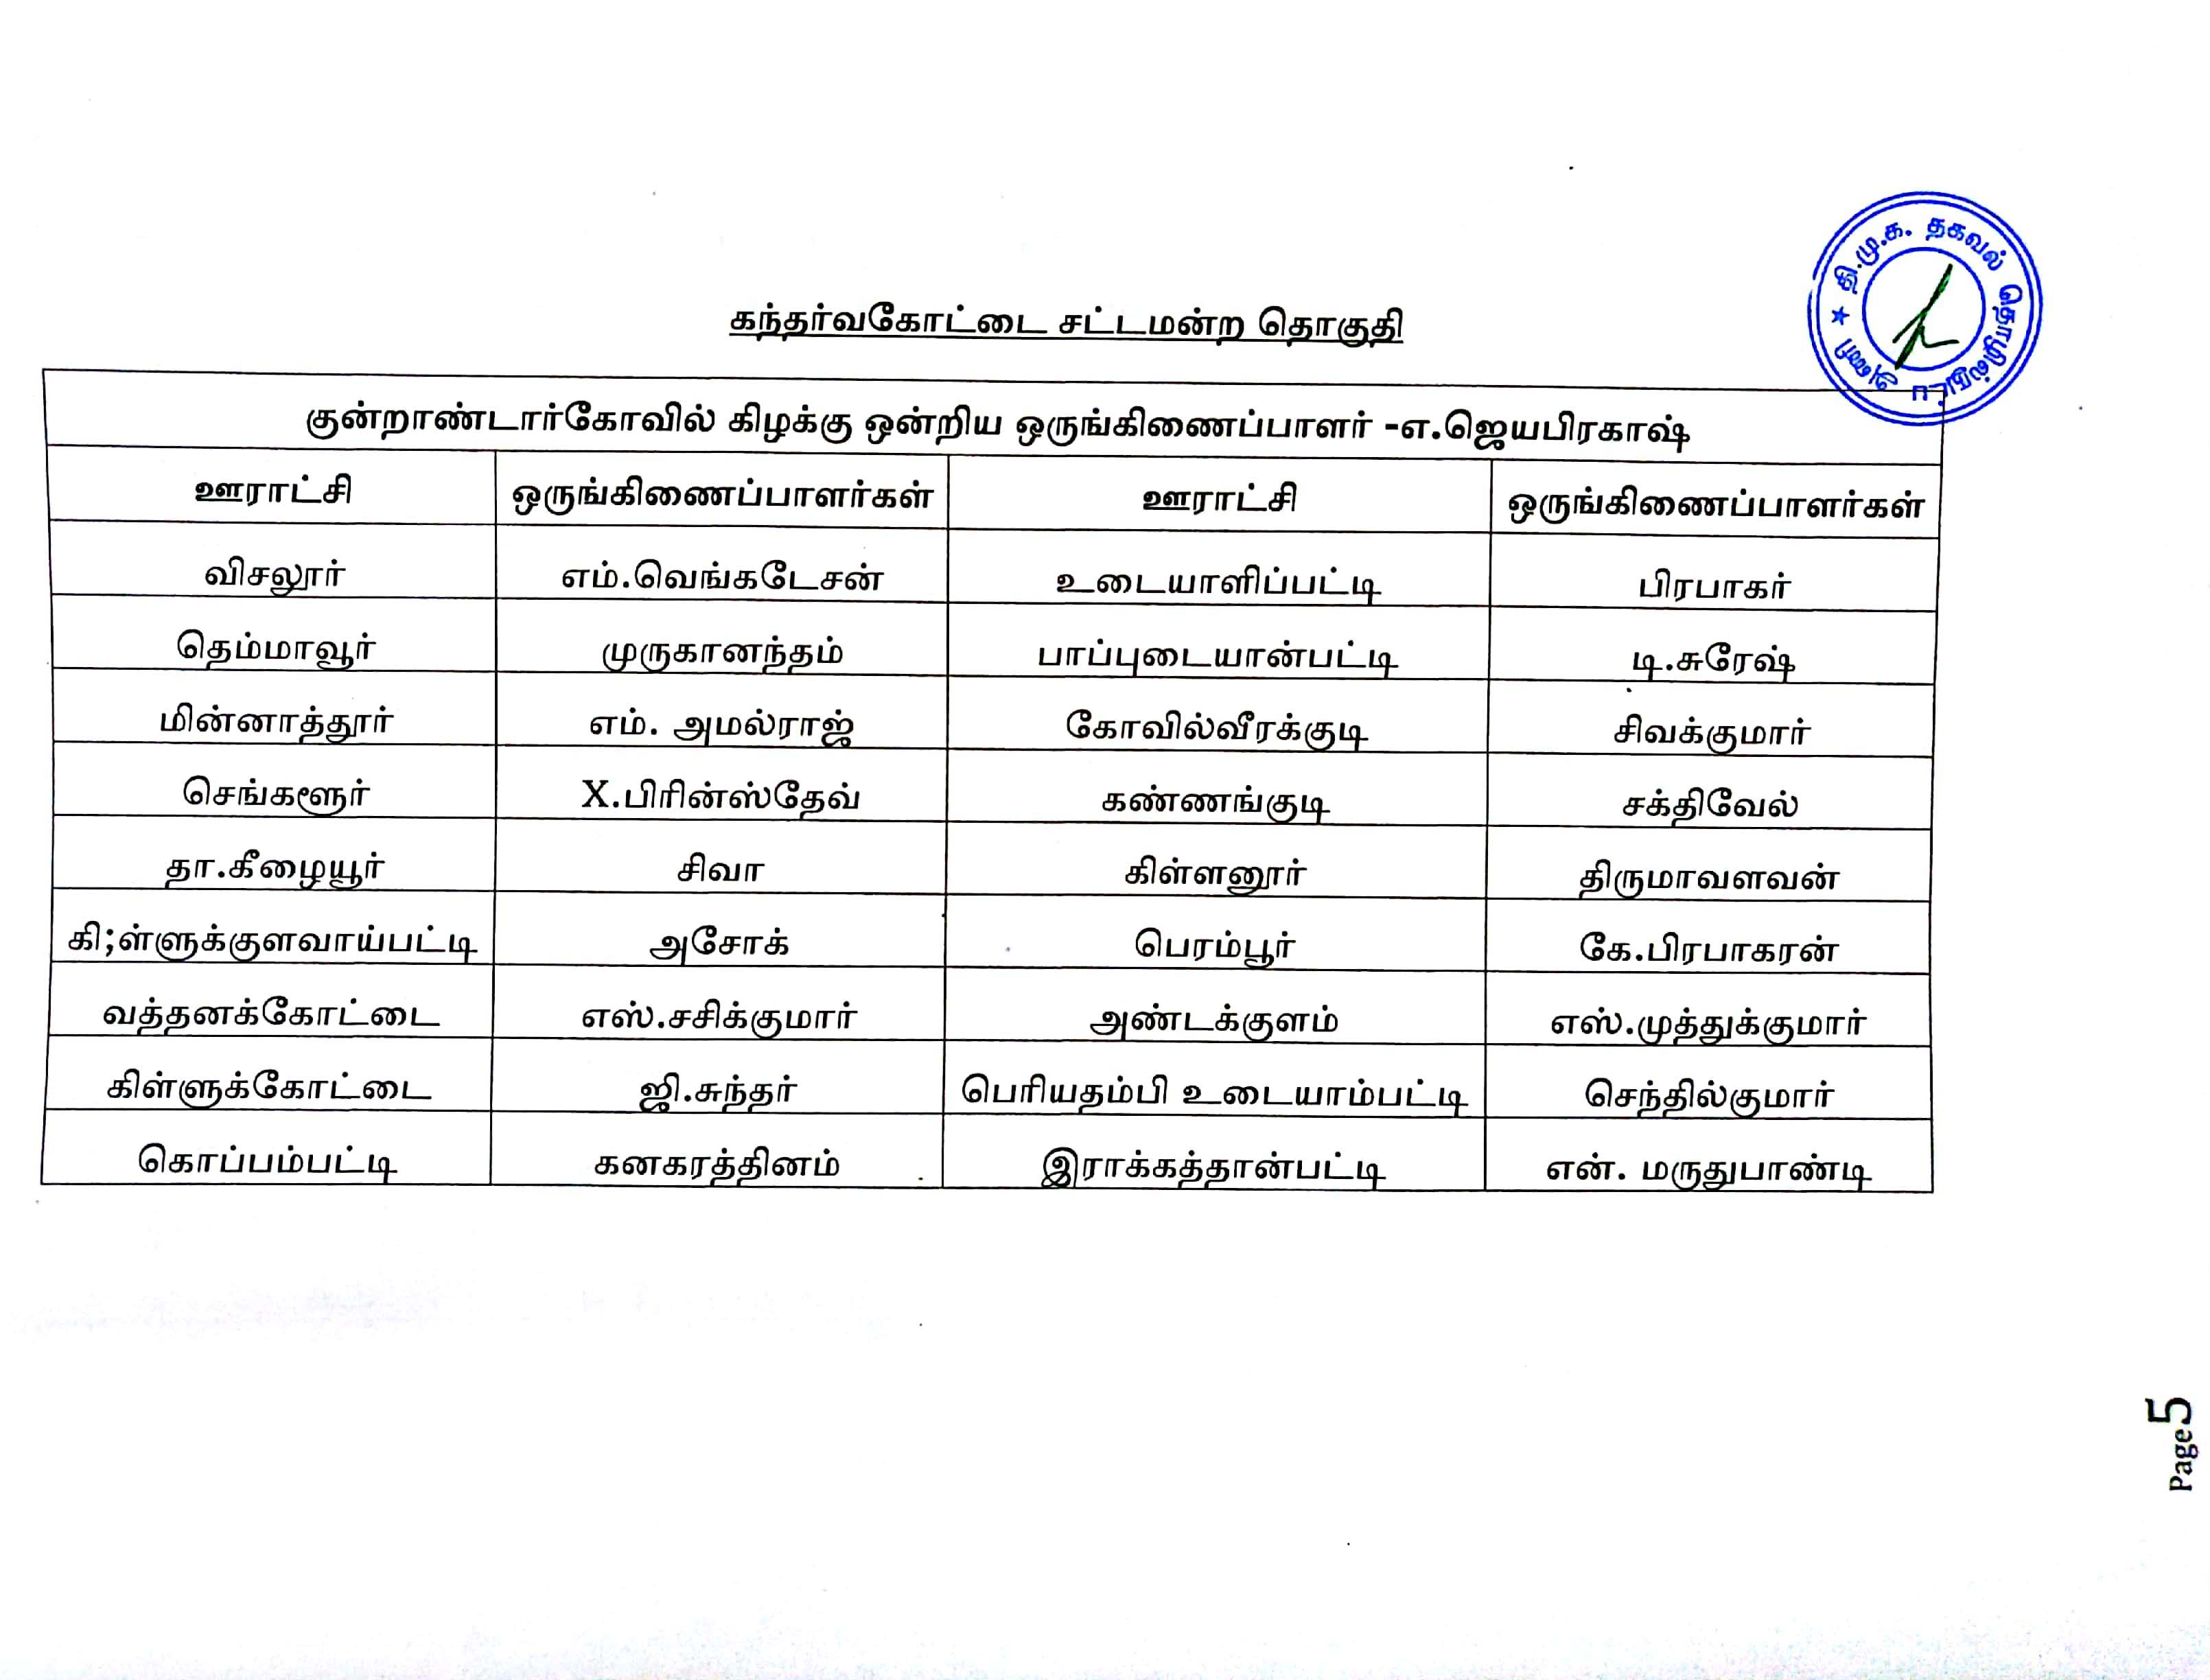 தி.மு.க. தகவல் தொழில்நுட்ப அணி
கந்தர்வகோட்டை சட்டமன்ற தொகுதி
குன்றாண்டார்கோவில் கிழக்கு ஒன்றிய ஒருங்கிணைப்பாளர் -எ.ஜெயபிரகாஷ்
ஊராட்சி ஒருங்கிணைப்பாளர்கள் ஊராட்சி ஒருங்கிணைப்பாளர்கள்
விசலூர் எம்.வெங்கடேசன் உடையாளிப்பட்டி பிரபாகர்
தெம்மாவூர் முருகானந்தம் பாப்புடையான்பட்டி டி.சுரேஷ்
மின்னாத்தூர் எம். அமல்ராஜ் கோவில்வீரக்குடி சிவக்குமார்
செங்களூர் X.பிரின்ஸ்தேவ் கண்ணங்குடி சக்திவேல்
தா.கீழையூர் சிவா கிள்ளனூர் திருமாவளவன்
கி;ள்ளுக்குளவாய்பட்டி அசோக் பெரம்பூர் கே.பிரபாகரன்
வத்தனக்கோட்டை எஸ்.சசிக்குமார் அண்டக்குளம் எஸ்.முத்துக்குமார்
கிள்ளுக்கோட்டை ஜி.சுந்தர் பெரியதம்பி உடையாம்பட்டி செந்தில்குமார்
கொப்பம்பட்டி கனகரத்தினம் இராக்கத்தான்பட்டி என். மருதுபாண்டி
Page5